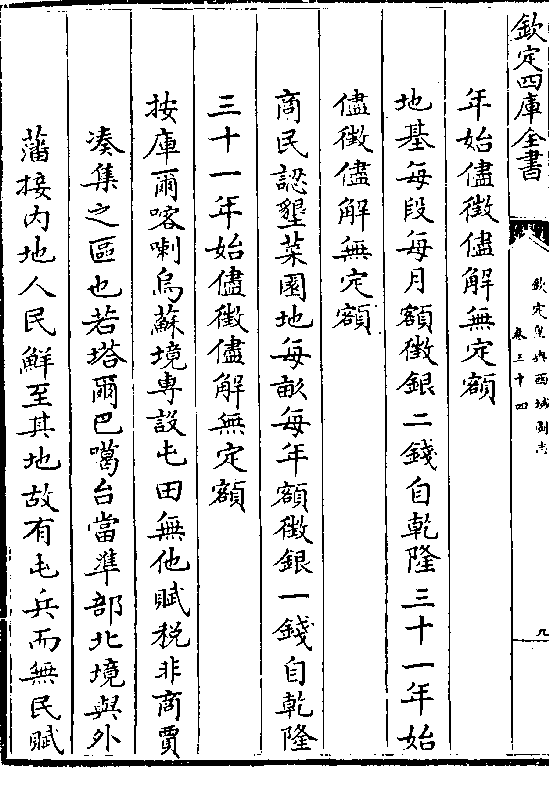 欽定四庫全書
欽定皇輿西域圖志
卷三十四
九
年始儘徵儘解無定額
地基每段每月額徵銀二錢自乾隆三十一年始
儘徵儘解無定額
商民認墾菜園地每畝每年額徵銀一錢自乾隆
三十一年始儘徵儘解無定額
按庫爾喀喇烏蘇境專設屯田無他賦税非商賈
湊集之區也若塔爾巴噶台當準部北境與外
藩接内地人民鮮至其地故有屯兵而無民賦